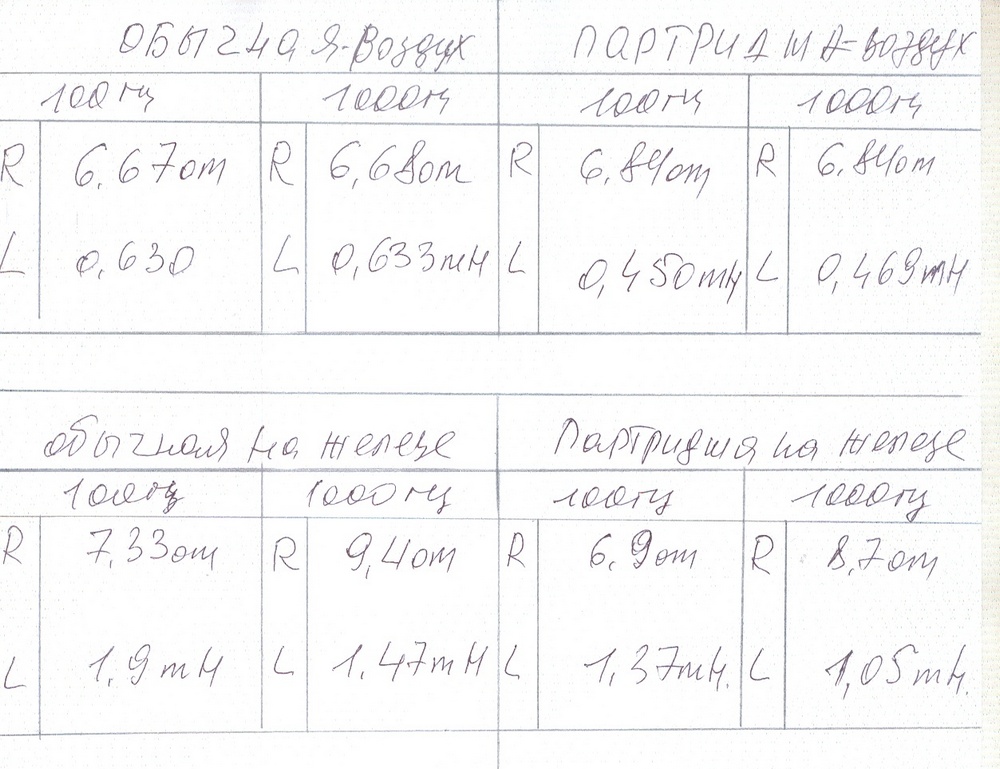 ОБЫЧНАЯ-Воздух ПАРТРИДША-воздух
100гц 1000гц 100гц 1000гц
R 6.67om R 6,68om R 6.84om R 6.84om
L 0,630 L 0,633mH L 0,450mH L 0,469mH
обычная на железе Партридша на железе
100гц 1000гц 100гц 1000гц
R 7,33om R 9,4om R 6.9om R 8,7om
L 1.9mH L 1.47mH L 1,37mH. L 1,05mH.